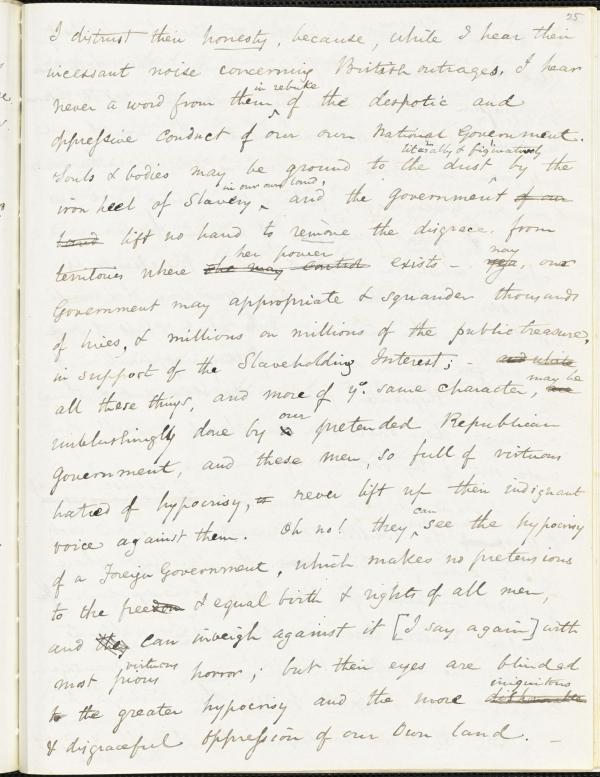 25
I distrust their honesty, because, while I hear their
incessant noise concerning British outrages, I hear
in rebuke
never a word from them of the despotic and
oppressive conduct of our own National Government.
literally & figuratively
Souls & bodies may be ground to the dust by the
in our own land,
iron heel of Slavery, and the Government of our
land lift no hand to remove the disgrace. from
her power nay
territories where she may control exists – our
Government may appropriate & squander thousands
of lives, & millions on millions of the public treasure,
in support of the Slaveholding Interest; – and while
may be
all these things, and more of ye. same character,
our
unblushingly done by pretended Republican
Government, and these men, so full of virtuous
hatred of hypocrisy, never lift up their indignant
can
voice against them. Oh no! they see the hypocrisy
of a Foreign Government, which makes no pretensions
to the freedom & equal birth & rights of all men,
and they can inveigh against it [I say again] with
virtuous
most pious horror; but their eyes are blinded
iniquitous
to the greater hypocrisy and the more dishonorable
& disgraceful oppression of our own land. –